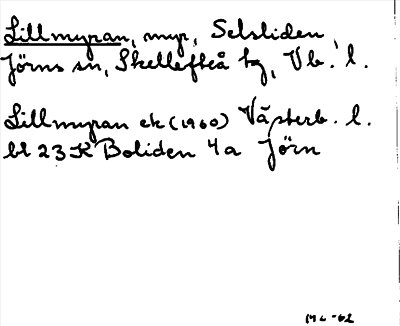 Lillmyran, myr, Selsliden,
Jörns sn, Skellefteå tg, Vb. l.
Lillmyran ek (1960) Västerb. l.
bl 23 K Boliden 4a Jörn